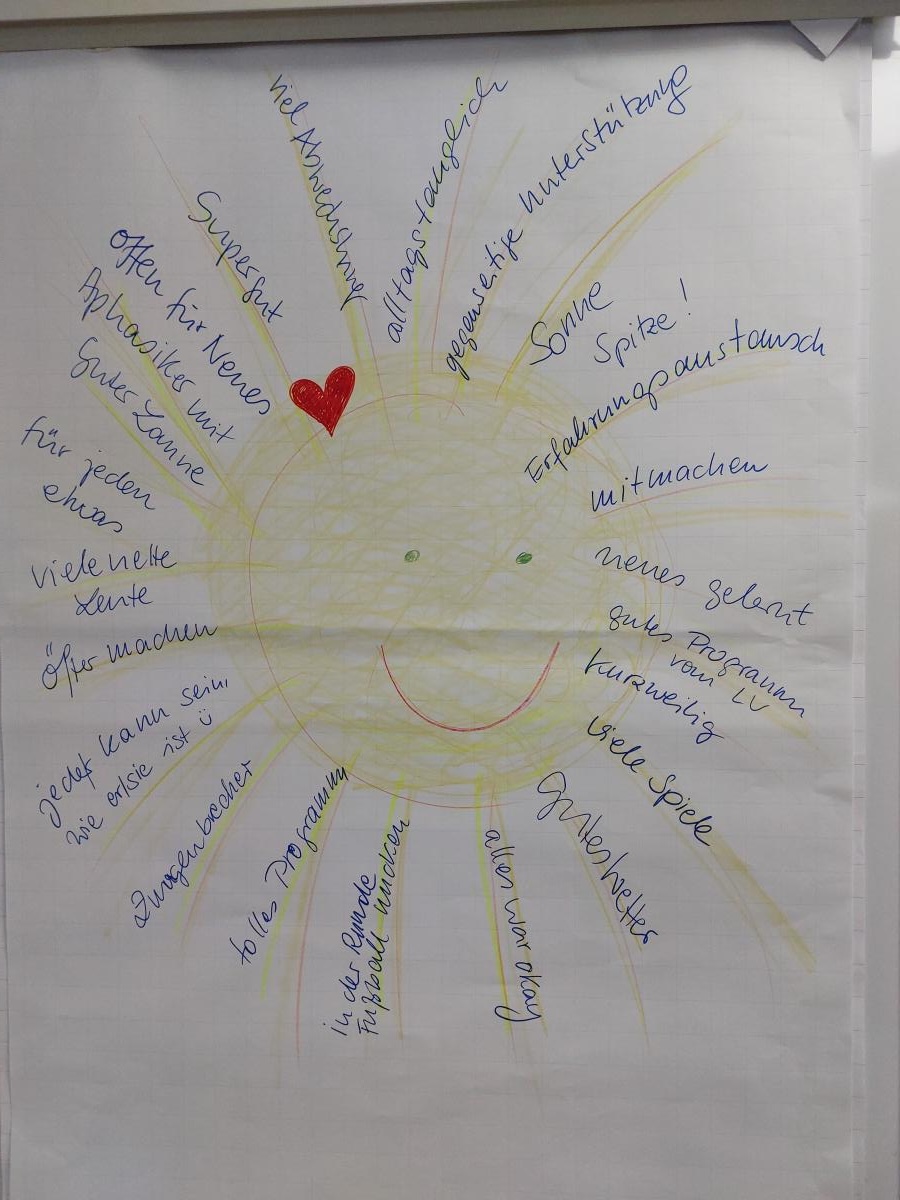 viel Abwechslung
alltagstauglich
gegenseitige Unterstützung
Sonne
Spitze!
Erfahrungsaustausch
mitmachen
neues gelernt
gutes Programm
vom LV
kurzweilig
viele Spiele
Gutes Wetter
alles war okay
in der Runde
Fußball
tolles Programm
Zungenbrecher
jeder kann sein,
wie er/sie ist ü
Öfter machen
viele nette
Leute
für jeden
etwas
Aphasiker mit
guter Laune
offen für Neues
Supergut